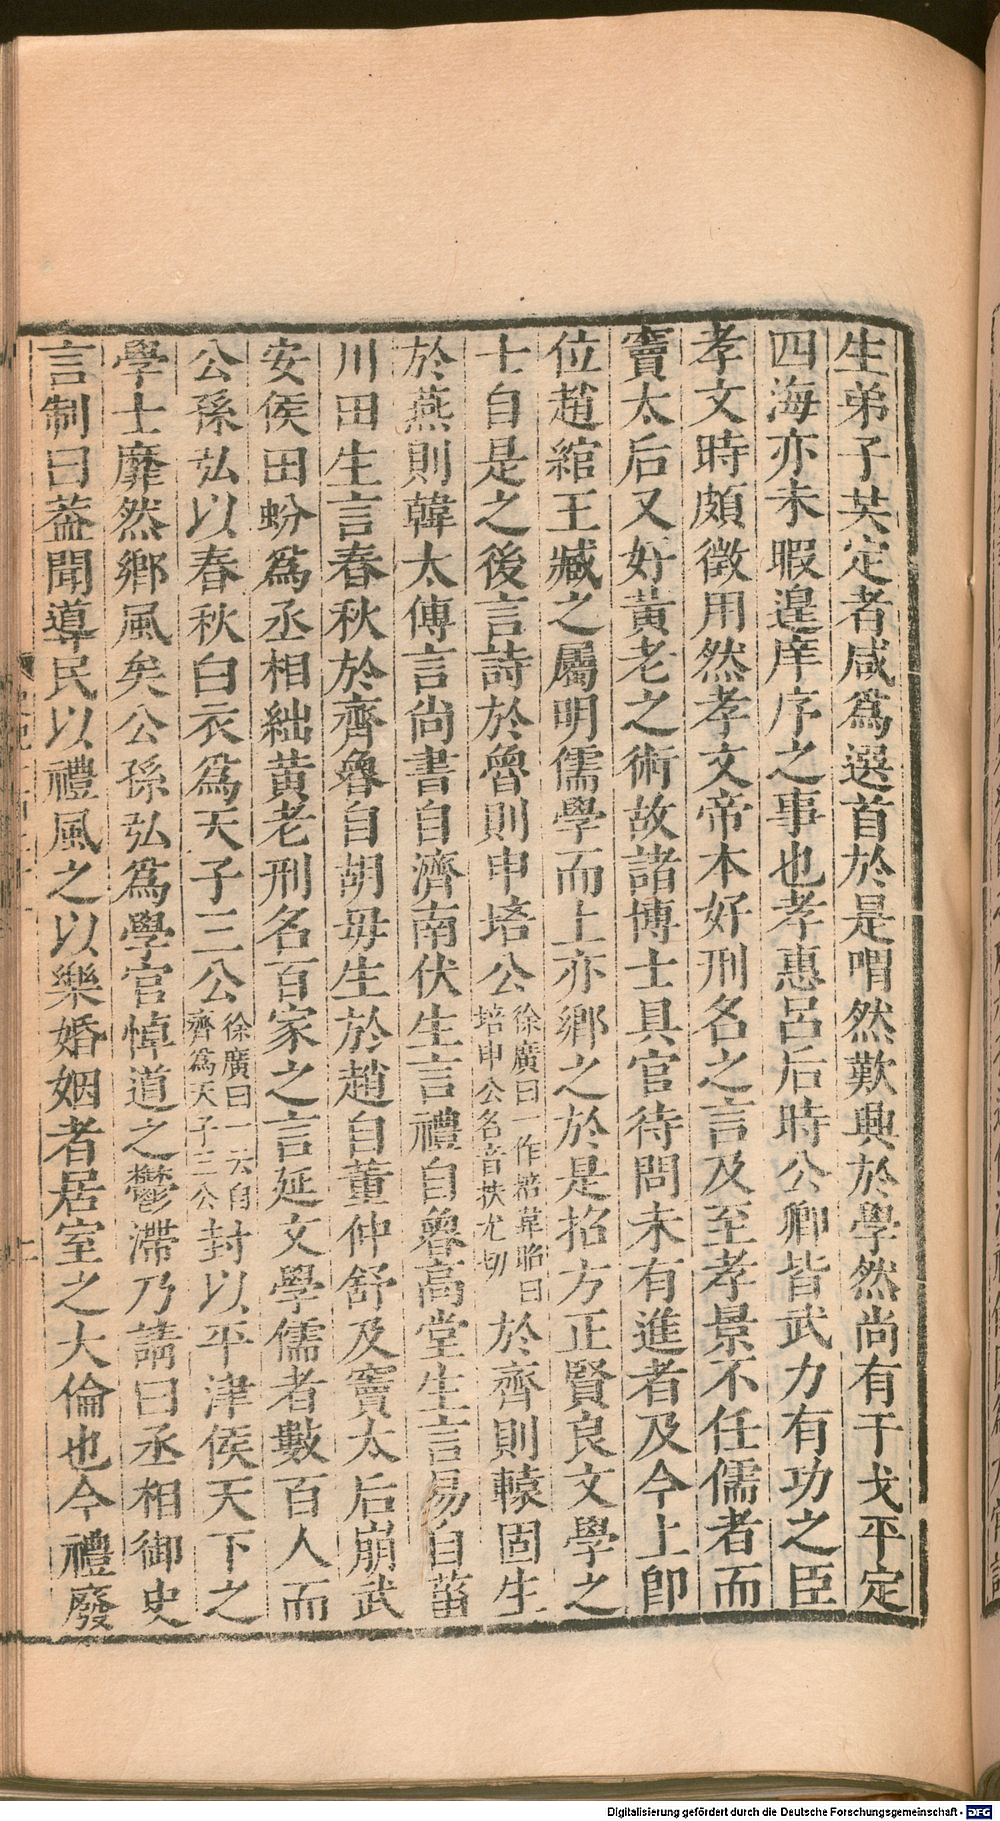 生弟子共定者咸為選首於是喟然歎興於學然尚有干戈平定
四海亦未暇遑庠序之事也孝惠呂后時公卿皆武力有功之臣
孝文時頗徵用然孝文帝本好刑名之言及至孝景不任儒者而
竇太后又好黃老之術故諸博士具官待問未有進者及今上卽
位趙綰王臧之屬明儒學而上亦鄉之於是招方正賢良文學之
士自是之後言詩於魯則申培公徐廣曰一作䓃韋昭曰培申公名音扶尤切於齊則轅固生
於燕則韓太傅言尚書自濟南伏生言禮自魯高堂生言易自菑
川田生言春秋於齊魯自胡毋生於趙自董仲舒及竇太后崩武
安侯田蚡為丞相絀黃老刑名百家之言延文學儒者數百人而
公孫弘以春秋白衣為天子三公徐廣曰一云自齊為天子三公封以平津侯天下之
學士靡然鄉風矣公孫弘為學官悼道之鬱滯乃請曰丞相御史
言制曰葢聞導民以禮風之以樂婚姻者居室之大倫也今禮廢
Digitalisierung gefördert durch die Deutsche Forschungsgemeinschaft - DFG